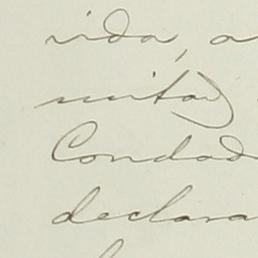 vida, a
mitad
Condad
declara